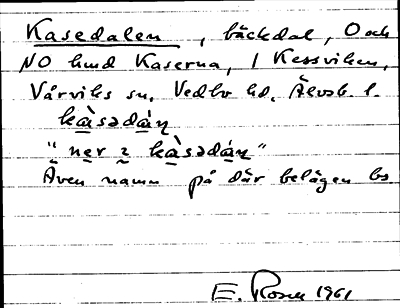 Kasedalen, bäckdal, O och
NO hmd Kaserna, i Kessviken,
Vårviks sn, Vedbo hd, Älvsb. l.
kàsədáɳ
"ner i kàsədáɳ"
Även namn på där belägen bs.
E. Rosell 1961